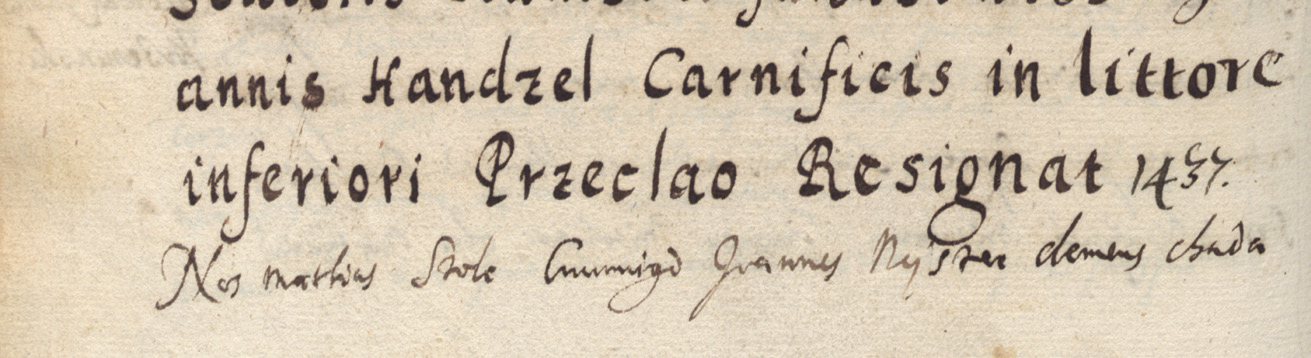 annis Handzel Carnificis in littore
inferiori Przeclao Resignat 1437.
Nos mathias Stole Joannes clemens